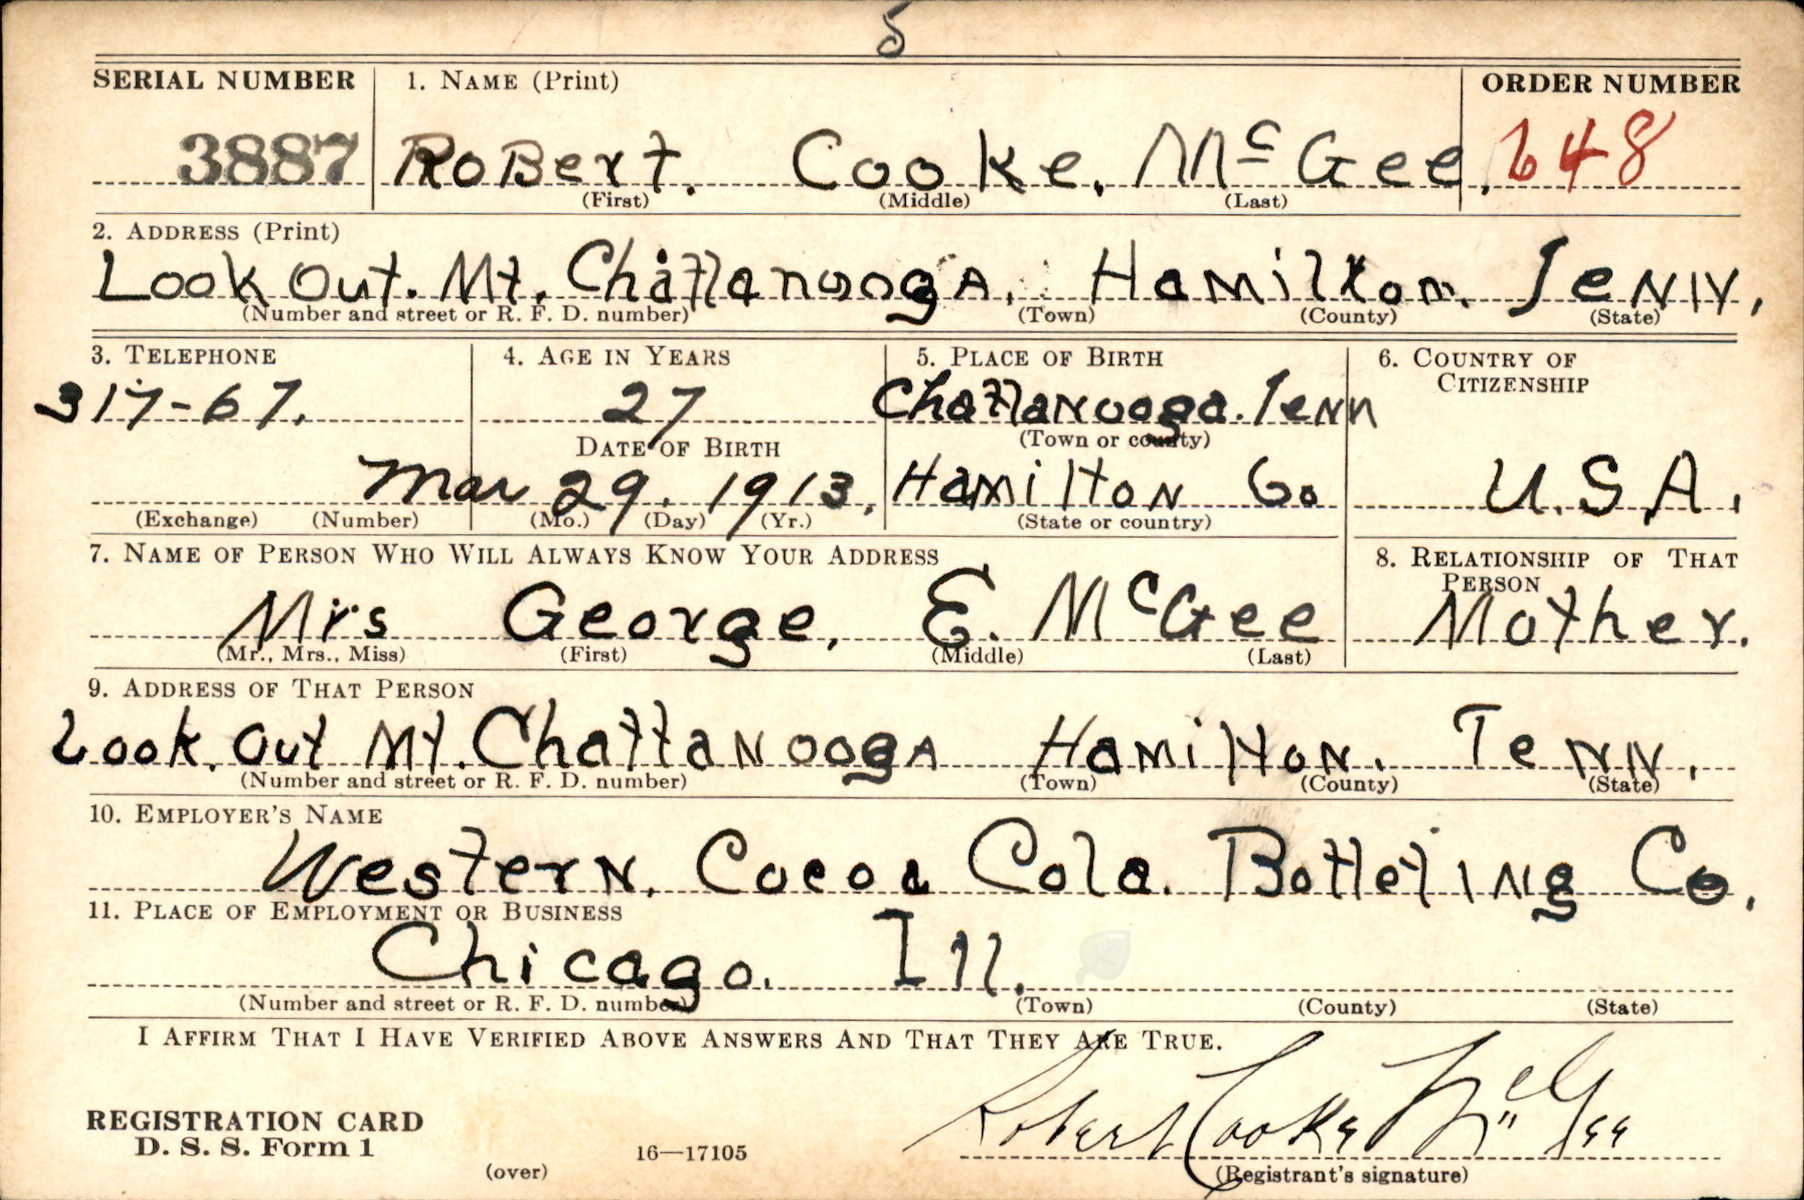 5
SERIAL NUMBER 1. NAME (Print) ORDER NUMBER
3887 RoBert. Cooke. McGee. 648
(First) (Middle) (Last)
2. ADDRESS (Print)
Look Out. Mt. ChattanoogA. Hamilton. TeNN.
(Number and street or R. F. D. number) (Town) (County) (State)
3. TELEPHONE 4. AGE IN YEARS 5. PLACE OF BIRTH 6. COUNTRY OF CITIZENSHIP
317-67. 27 ChattaNooga. TeNN
DATE OF BIRTH (Town or county)
Mar 29. 1913. HamiltoN Co U.S.A.
(Exchange) (Number) (Mo.) (Day) (Yr.) (State or country)
7. NAME OF PERSON WHO WILL ALWAYS KNOW YOUR ADDRESS 8. RELATIONSHIP OF THAT PERSON
Mrs George, E. McGee Mother.
(Mr., Mrs., Miss) (First) (Middle) (Last)
9. ADDRESS OF THAT PERSON
Look. Out Mt. ChattaNoogA HamiltoN. TeNN.
(Number and street or R. F. D. number) (Town) (County) (State)
10. EMPLOYER'S NAME
WesterN. Cocoa Cola. BotteliNg Co.
11. PLACE OF EMPLOYMENT OR BUSINESS
Chicago. Ill.
(Number and street or R. F. D. number) (Town) (County) (State)
I AFFIRM THAT I HAVE VERIFIED ABOVE ANSWERS AND THAT THEY ARE TRUE.
Robert Cooke McGee
REGISTRATION CARD
D. S. S. Form 1
(over) 16—17105 (Registrant's signature)